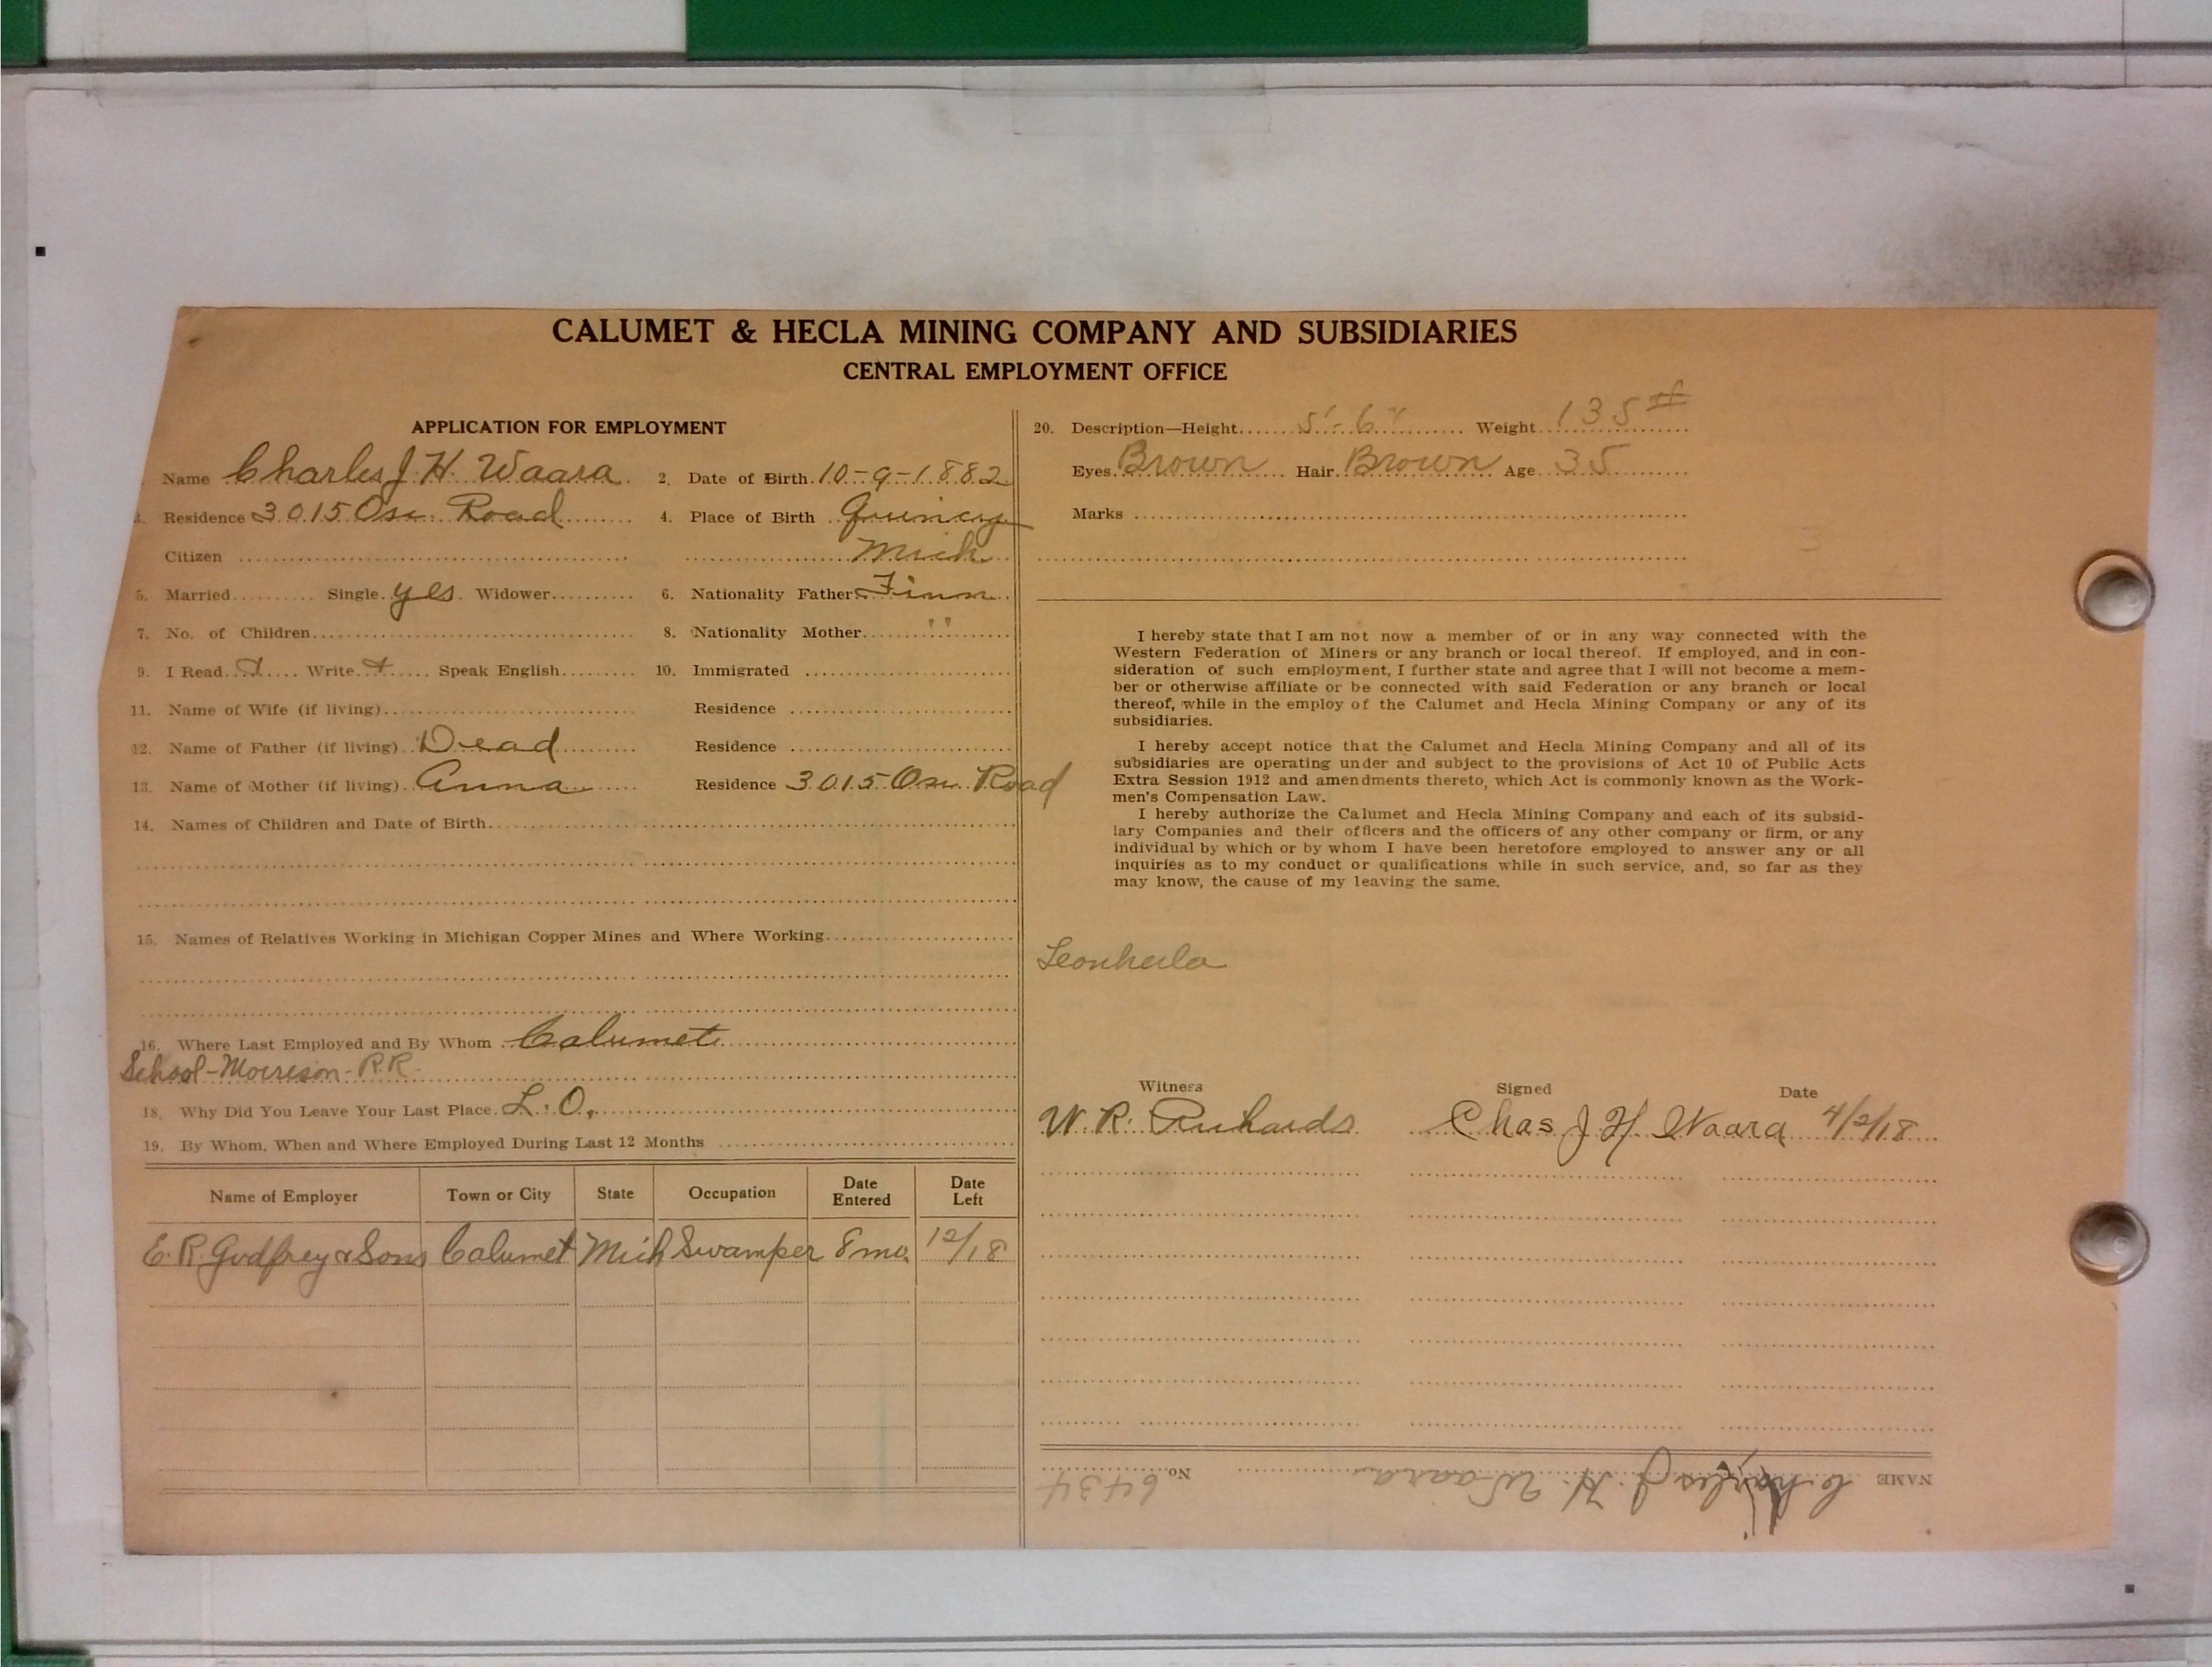 CALUMET & HECLA MINING COMPANY AND SUBSIDIARIES
CENTRAL EMPLOYMENT OFFICE
APPLICATION FOR EMPLOYMENT
Name Charles J. H. Waara 2. Date of Birth 10-9-1882
3. Residence 3015 Osc. Road 4. Place of Birth Quincy
Citizen Mich
5. Married Single yes Widower 6. Nationality Father Finn
7. No. of Children 8. Nationality Mother " "
9. I Read Write Speak English 10. Immigrated
11. Name of Wife (if living) Residence
12. Name of Father (if living) Dead Residence
13. Name of Mother (if living) Anna Residence 3015 Osc. Road
14. Names of Children and Date of Birth
15. Names of Relatives Working in Michigan Copper Mines and Where Working
16. Where Last Employed and By Whom Calumet
School-Morrison-R.R.
18. Why Did You Leave Your Last Place L.O.
19. By Whom, When and Where Employed During Last 12 Months
Name of Employer Town or City State Occupation Date Entered Date Left
E. R. Godfrey & Sons Calumet Mich Swamper 8 mo. 12/18
20. Description—Height 5'-6" Weight 135#
Eyes Brown Hair Brown Age 35
Marks
I hereby state that I am not now a member of or in any way connected with the
Western Federation of Miners or any branch or local thereof. If employed, and in con-
sideration of such employment, I further state and agree that I will not become a mem-
ber or otherwise affiliate or be connected with said Federation or any branch or local
thereof, while in the employ of the Calumet and Hecla Mining Company or any of its
subsidiaries.
I hereby accept notice that the Calumet and Hecla Mining Company and all of its
subsidiaries are operating under and subject to the provisions of Act 10 of Public Acts
Extra Session 1912 and amendments thereto, which Act is commonly known as the Work-
men's Compensation Law.
I hereby authorize the Calumet and Hecla Mining Company and each of its subsid-
iary Companies and their officers and the officers of any other company or firm, or any
individual by which or by whom I have been heretofore employed to answer any or all
inquiries as to my conduct or qualifications while in such service, and, so far as they
may know, the cause of my leaving the same.
Witness Signed Date
W. R. Richards Chas J H Waara 4/2/18
NAME Charles J. H. Waara No. 6434